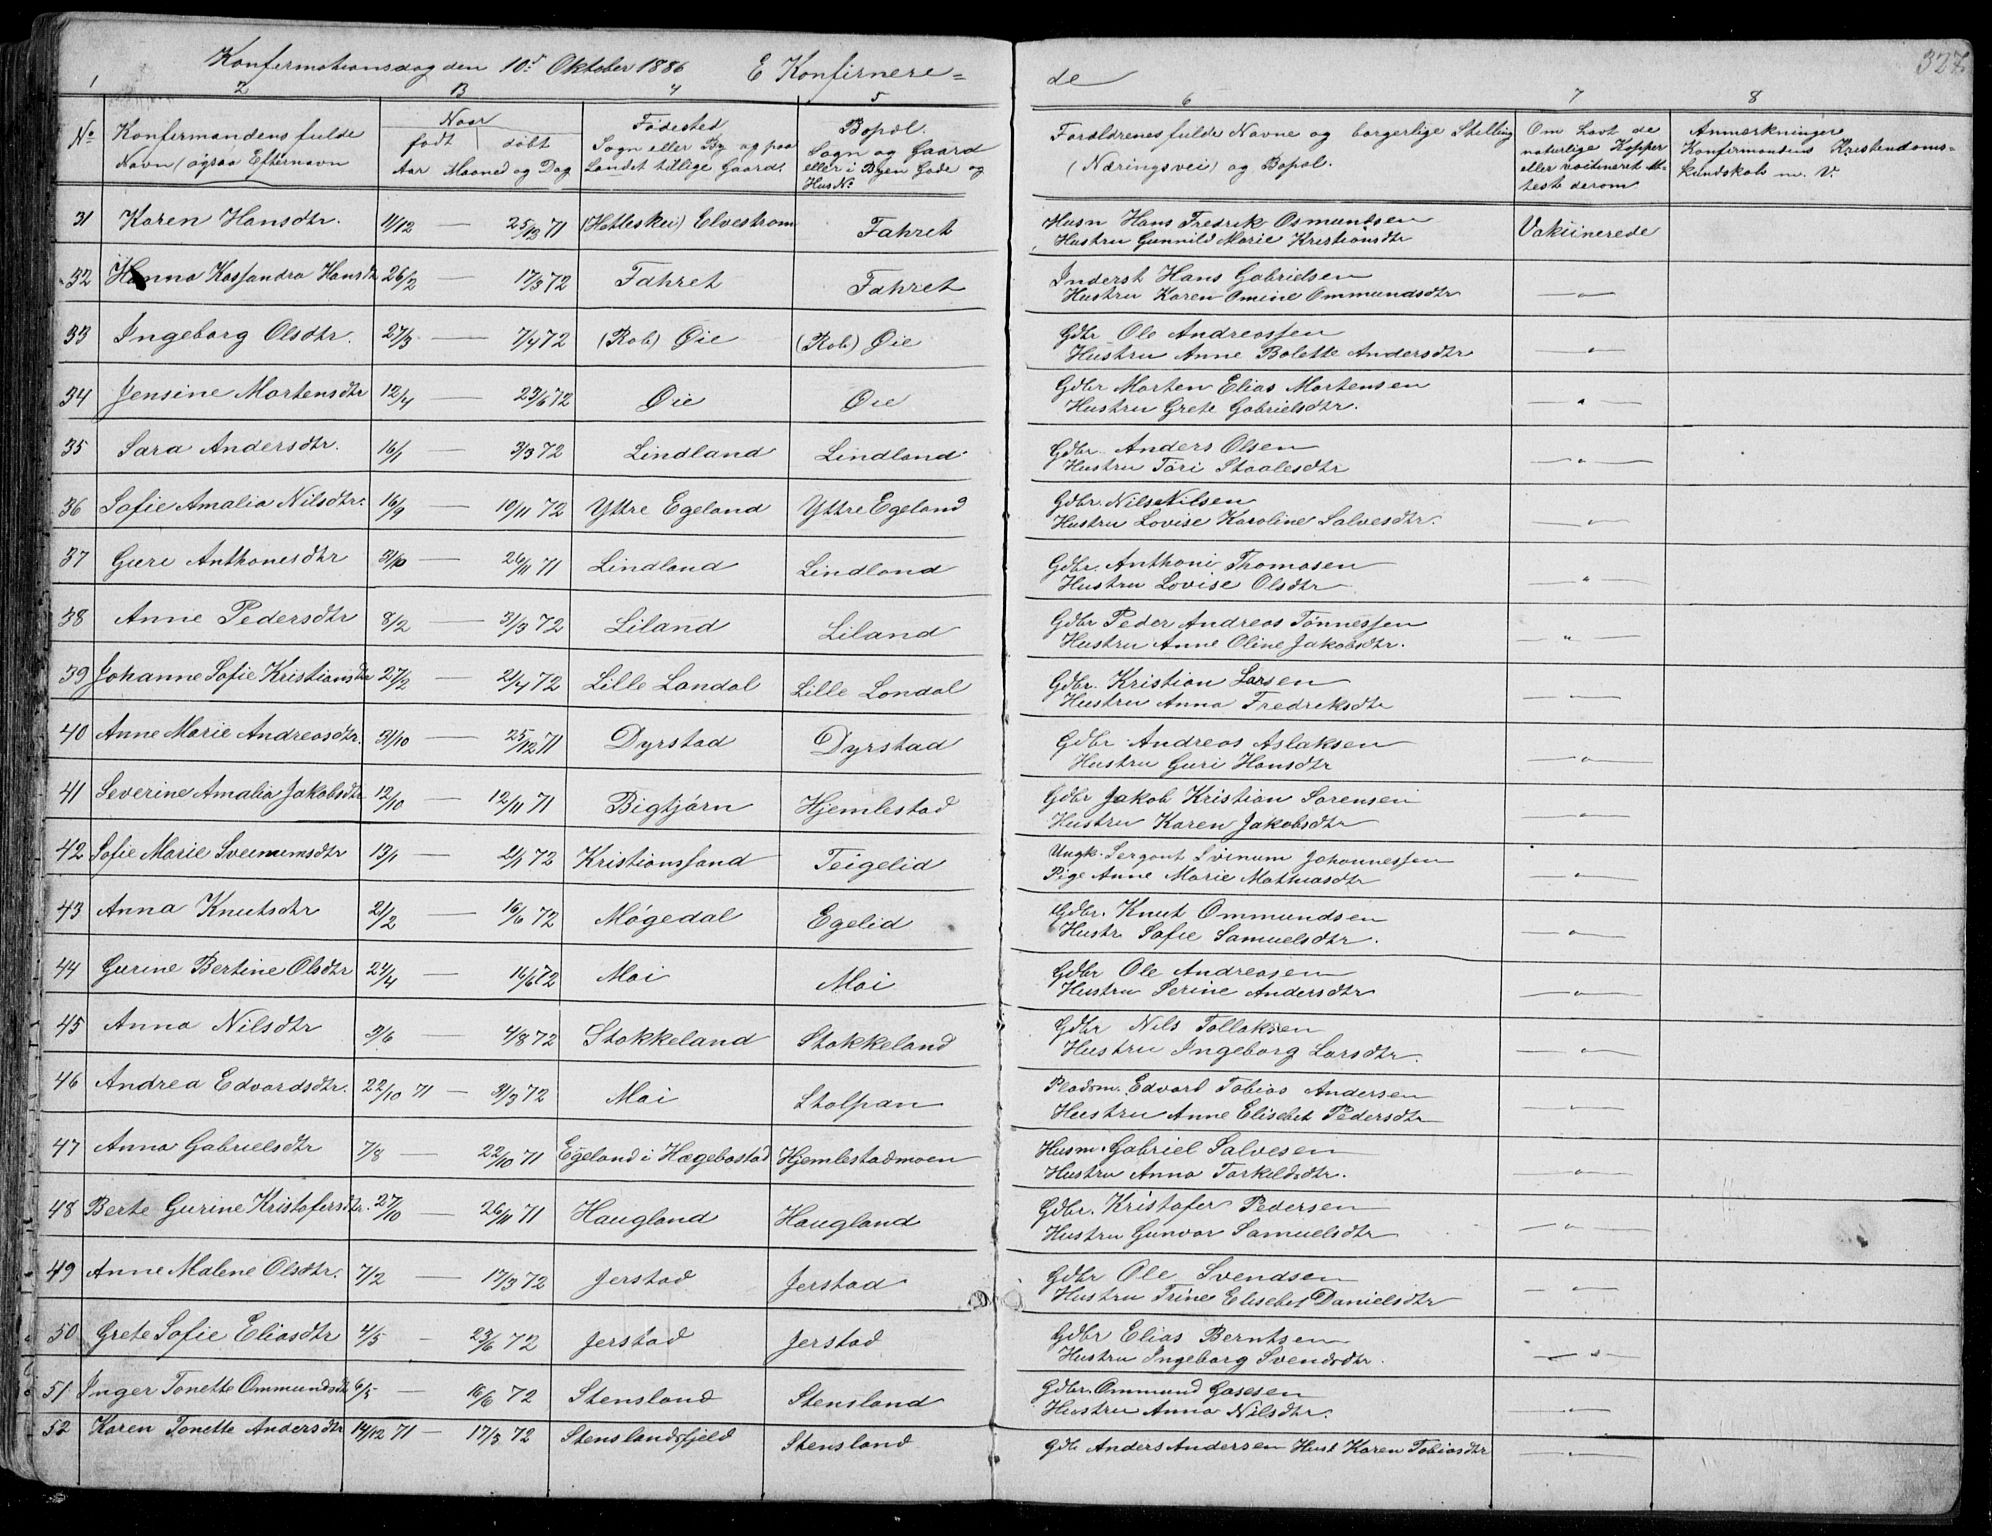 Konfirmationsdag den 10d Oktober 1886 E Konfirmere=
de
327.
1 2 3 4 5 6 7 8
No
Konfirmandens fulde
Navn (ogsaa Efternavn
Naar
født døbt
Aar Maaned og Dag
Fødested
Sogn eller By og paa
Landet tillige Gaard.
Bopæl.
Sogn og Gaard
eller i Byen Gade og
Hus No
Forældrenes fulde Navne og borgerlige Stilling
(Næringsvei) og Bopæl.
Om havt de
naturlige Kopper
eller vaccineret At-
test derom
Anmærkninger
Konfirmandens Kristendoms-
kundskab m. V.
31 Karen Hansdtr. 11/12 — 25/12 71 (Hatleskei) Elvestrom Fahret
Husm Hans Fredrik Osmundsen
Hustru Gunnild Marie Kristiansdtr Vakiinerede
32 Hanna Kassandra Hansdtr 26/2 — 17/3 72 Fahret Fahret
Inderst Hans Gabrielsen
Hustru Karen Omine Ommundsdtr — " —
33 Ingeborg Olsdtr. 27/3 — 7/4 72 (Rob) Øie (Rob) Øie
Gdbr Ole Andreassen
Hustru Anne Bolette Andersdtr — " —
34 Jensine Mortensdtr 12/4 — 23/6 72 Øie Øie
Gdbr Morten Elias Mortensen
Hustru Grete Gabrielsdtr. — " —
35 Sara Andersdtr. 16/1 — 3/3 72 Lindland Lindland
Gdbr. Anders Olsen
Hustru Tori Staalesdtr — " —
36 Sofie Amalia Nilsdtr. 16/9 — 10/11 72 Yttre Egeland Yttre Egeland
Gdbr. Nils Nilsen
Hustru Lovise Karoline Salvesdtr. — " —
37 Guri Anthonesdtr 31/10 — 26/11 71 Lindland Lindland
Gdbr. Anthoni Thomasen
Hustru Lovise Olsdtr — " —
38 Anne Pedersdtr 8/2 — 31/3 72 Liland Liland
Gdbr Peder Andreas Tønnessen
Hustru Anne Oline Jakobsdtr. — " —
39 Johanne Sofie Kristiansdtr 27/2 — 21/4 72 Lille Landal Lille Londal
Gdbr. Kristian Larsen
Hustru Anna Fredriksdtr — " —
40 Anne Marie Andreasdtr. 31/10 — 25/12 71 Dyrstad Dyrstad
Gdbr Andreas Aslaksen
Hustru Guri Hansdtr — " —
41 Severine Amalia Jakobsdtr 12/10 — 12/11 71 Bigtjørn Hjemlestad
Gdbr Jakob Kristian Sørensen
Hustru Karen Jakobsdtr — " —
42 Sofie Marie Sveinumsdtr 13/1 — 21/1 72 Kristianssand Teigelid
Ungk. Sergant Svinum Johannessen
Pige Anne Marie Mathiasdtr — " —
43 Anna Knutsdtr 21/2 — 16/6 72 Møgedal Egelid
Gdbr. Knut Ommundsen
Hustr Sofie Samuelsdtr. — " —
44 Gurine Bertine Olsdtr 24/4 — 16/6 72 Moi Moi
Gdbr Ole Andreasen
Hustru Serine Andersdtr — " —
45 Anna Nilsdtr 9/6 — 4/8 72 Stokkeland Stokkeland
Gdbr Nils Tollaksen
Hustru Ingeborg Larsdtr. — " —
46 Andrea Edvardsdtr. 22/10 71 — 31/3 72 Moi Stolpan
Pladsm. Edvart Tobias Andersen
Hustru Anne Elisebet Pedersdtr — " —
47 Anna Gabrielsdtr 7/8 — 22/10 71 Egeland i Hægebostad Hjemlestadmoen
Husm. Gabriel Salvesen
Hustru Anna Torkildsdtr. — " —
48 Berte Gurine Kristofersdtr. 27/10 — 26/11 71 Haugland Haugland
Gdbr. Kristofer Pedersen
Hustru Gunvor Samuelsdtr — " —
49 Anne Malene Olsdtr. 7/2 — 17/3 72 Jerstad Jerstad
Gdbr Ole Svendsen
Hustru Trine Elisebet Danielsdtr — " —
50 Grete Sofie Eliasdtr 4/5 — 23/6 72 Jerstad Jerstad
Gdbr Elias Berntsen
Hustru Ingeborg Svendsdtr. — " —
51 Inger Tonette Ommundsdtr 6/5 — 16/6 72 Stensland Stensland
Gdbr. Ommund Gasesen
Hustru Anna Nilsdtr. — " —
52 Karen Tonette Andersdtr 14/12 71 — 17/3 72 Stenslandsfjeld Stensland
Gdb Anders Andersen Hust Karen Tobiasdtr — " —